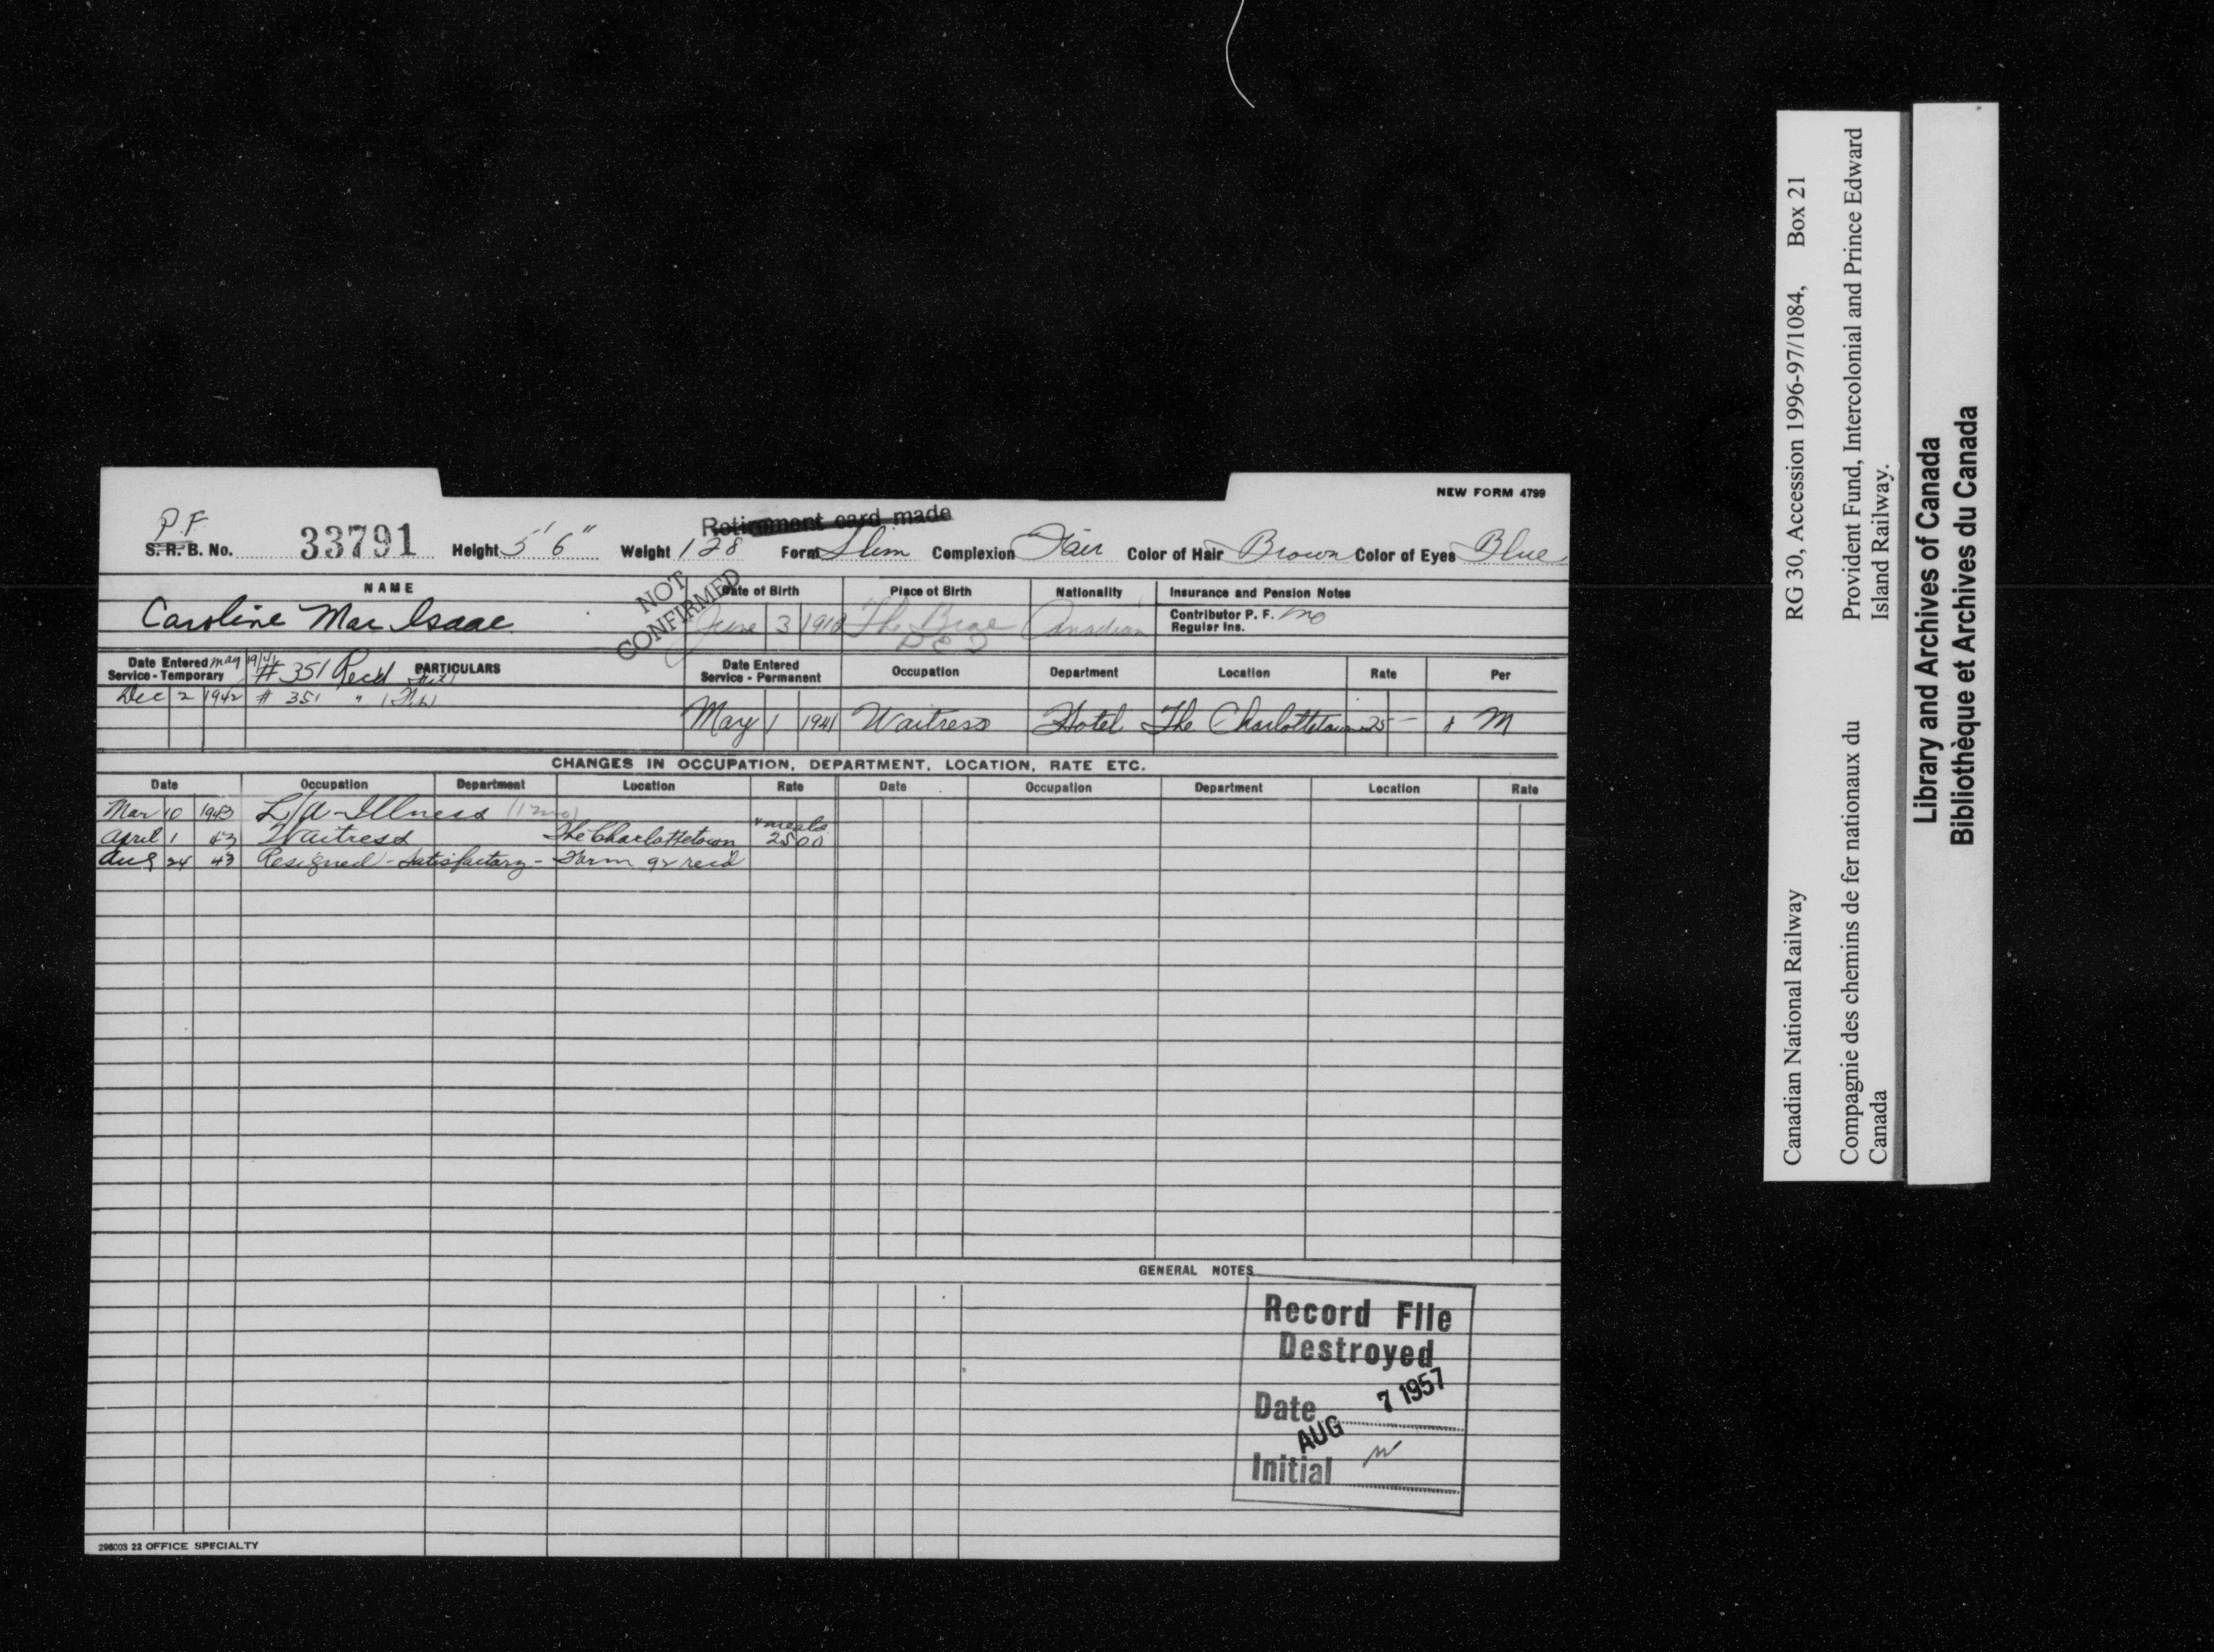 NEW FORM 4799
Retirement card made
P.F.
S.R.B. No. 33791 Height 5' 6" Weight 128 Form Slim Complexion Fair Color of Hair Brown Color of Eyes Blue
NOT CONFIRMED
NAME Date of Birth Place of Birth Nationality Insurance and Pension Notes
Caroline MacIsaac June 3 The Brae Canadian Contributor P. F. no
Regular Ins.
P E I
Date Entered Service - Temporary May 19/41 # 351 Rec'd PARTICULARS Date Entered Service - Permanent Occupation Department Location Rate Per
Dec 2 1942 # 351 "
May 1 1941 Waitress Hotel The Charlottetown 25 - M
CHANGES IN OCCUPATION, DEPARTMENT, LOCATION, RATE ETC.
Date Occupation Department Location Rate Date Occupation Department Location Rate
Mar 10 1943 L/A - Illness (1 mo)
April 1 43 Waitress The Charlottetown + meals 25 00
Aug 24 43 Resigned - Satisfactory - Form 92 recd
GENERAL NOTES
Record File
Destroyed
Date AUG 7 1957
Initial
298003 22 OFFICE SPECIALTY
Canadian National Railway RG 30, Accession 1996-97/1084, Box 21
Compagnie des chemins de fer nationaux du Provident Fund, Intercolonial and Prince Edward
Canada Island Railway.
Library and Archives of Canada
Bibliothèque et Archives du Canada